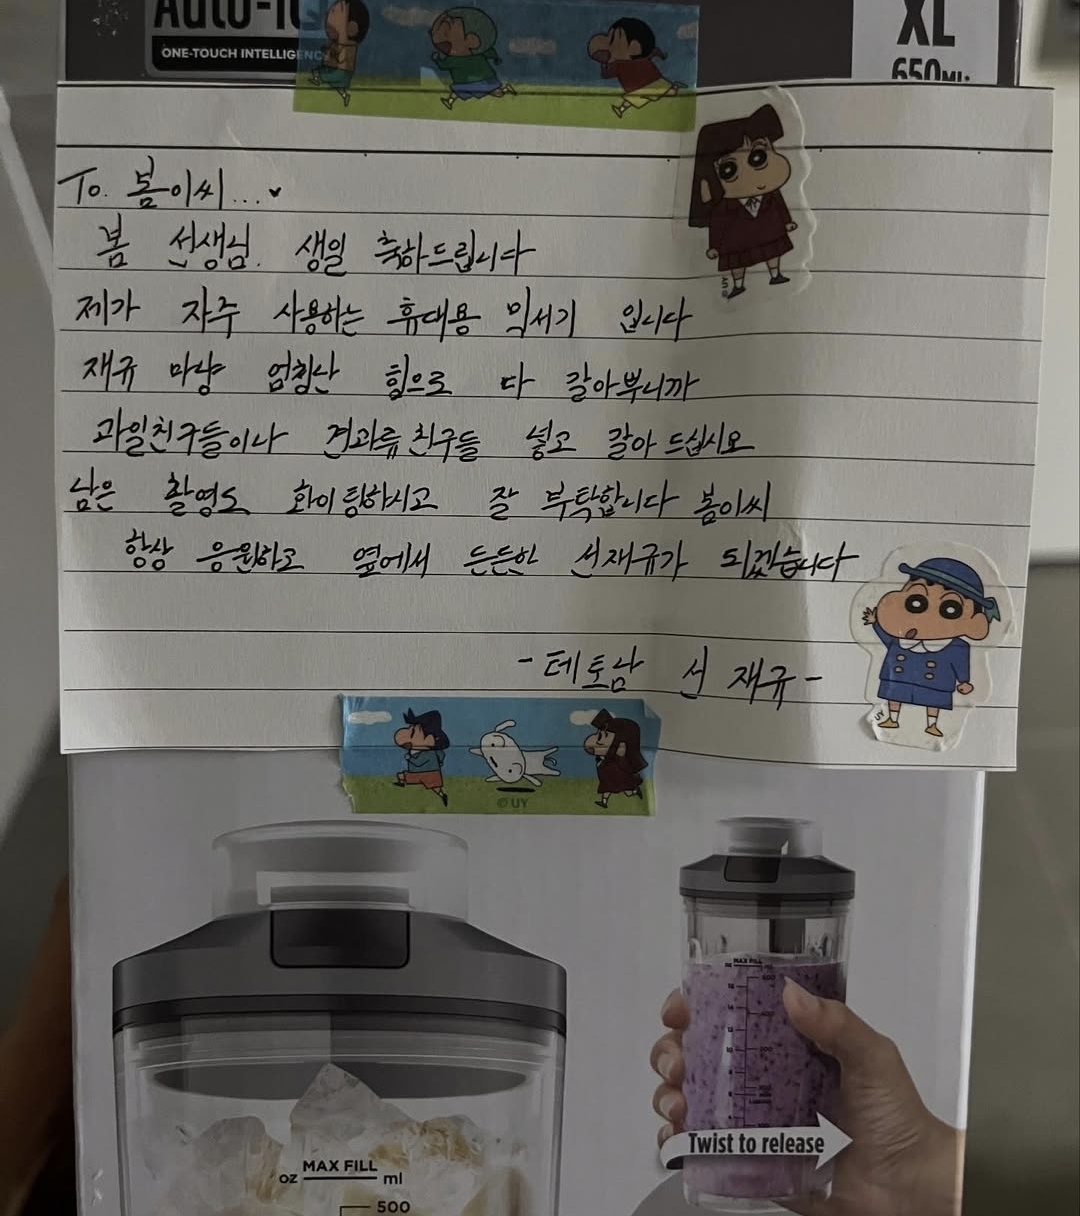 Auto-iQ
ONE-TOUCH INTELLIGENCE
XL
650ML
To. 봄이씨...
봄 선생님. 생일 축하드립니다
제가 자주 사용하는 휴대용 믹서기 입니다
재규 마냥 엄청난 힘으로 다 갈아뿌니까
과일친구들이나 견과류친구들 넣고 갈아 드십시오
남은 촬영도 화이팅하시고 잘 부탁합니다 봄이씨
항상 응원하고 옆에서 든든한 선재규가 되겠습니다
-테토남 선재규-
©UY
©UY
©UY
MAX FILL
oz ml
500
MAX FILL
Twist to release